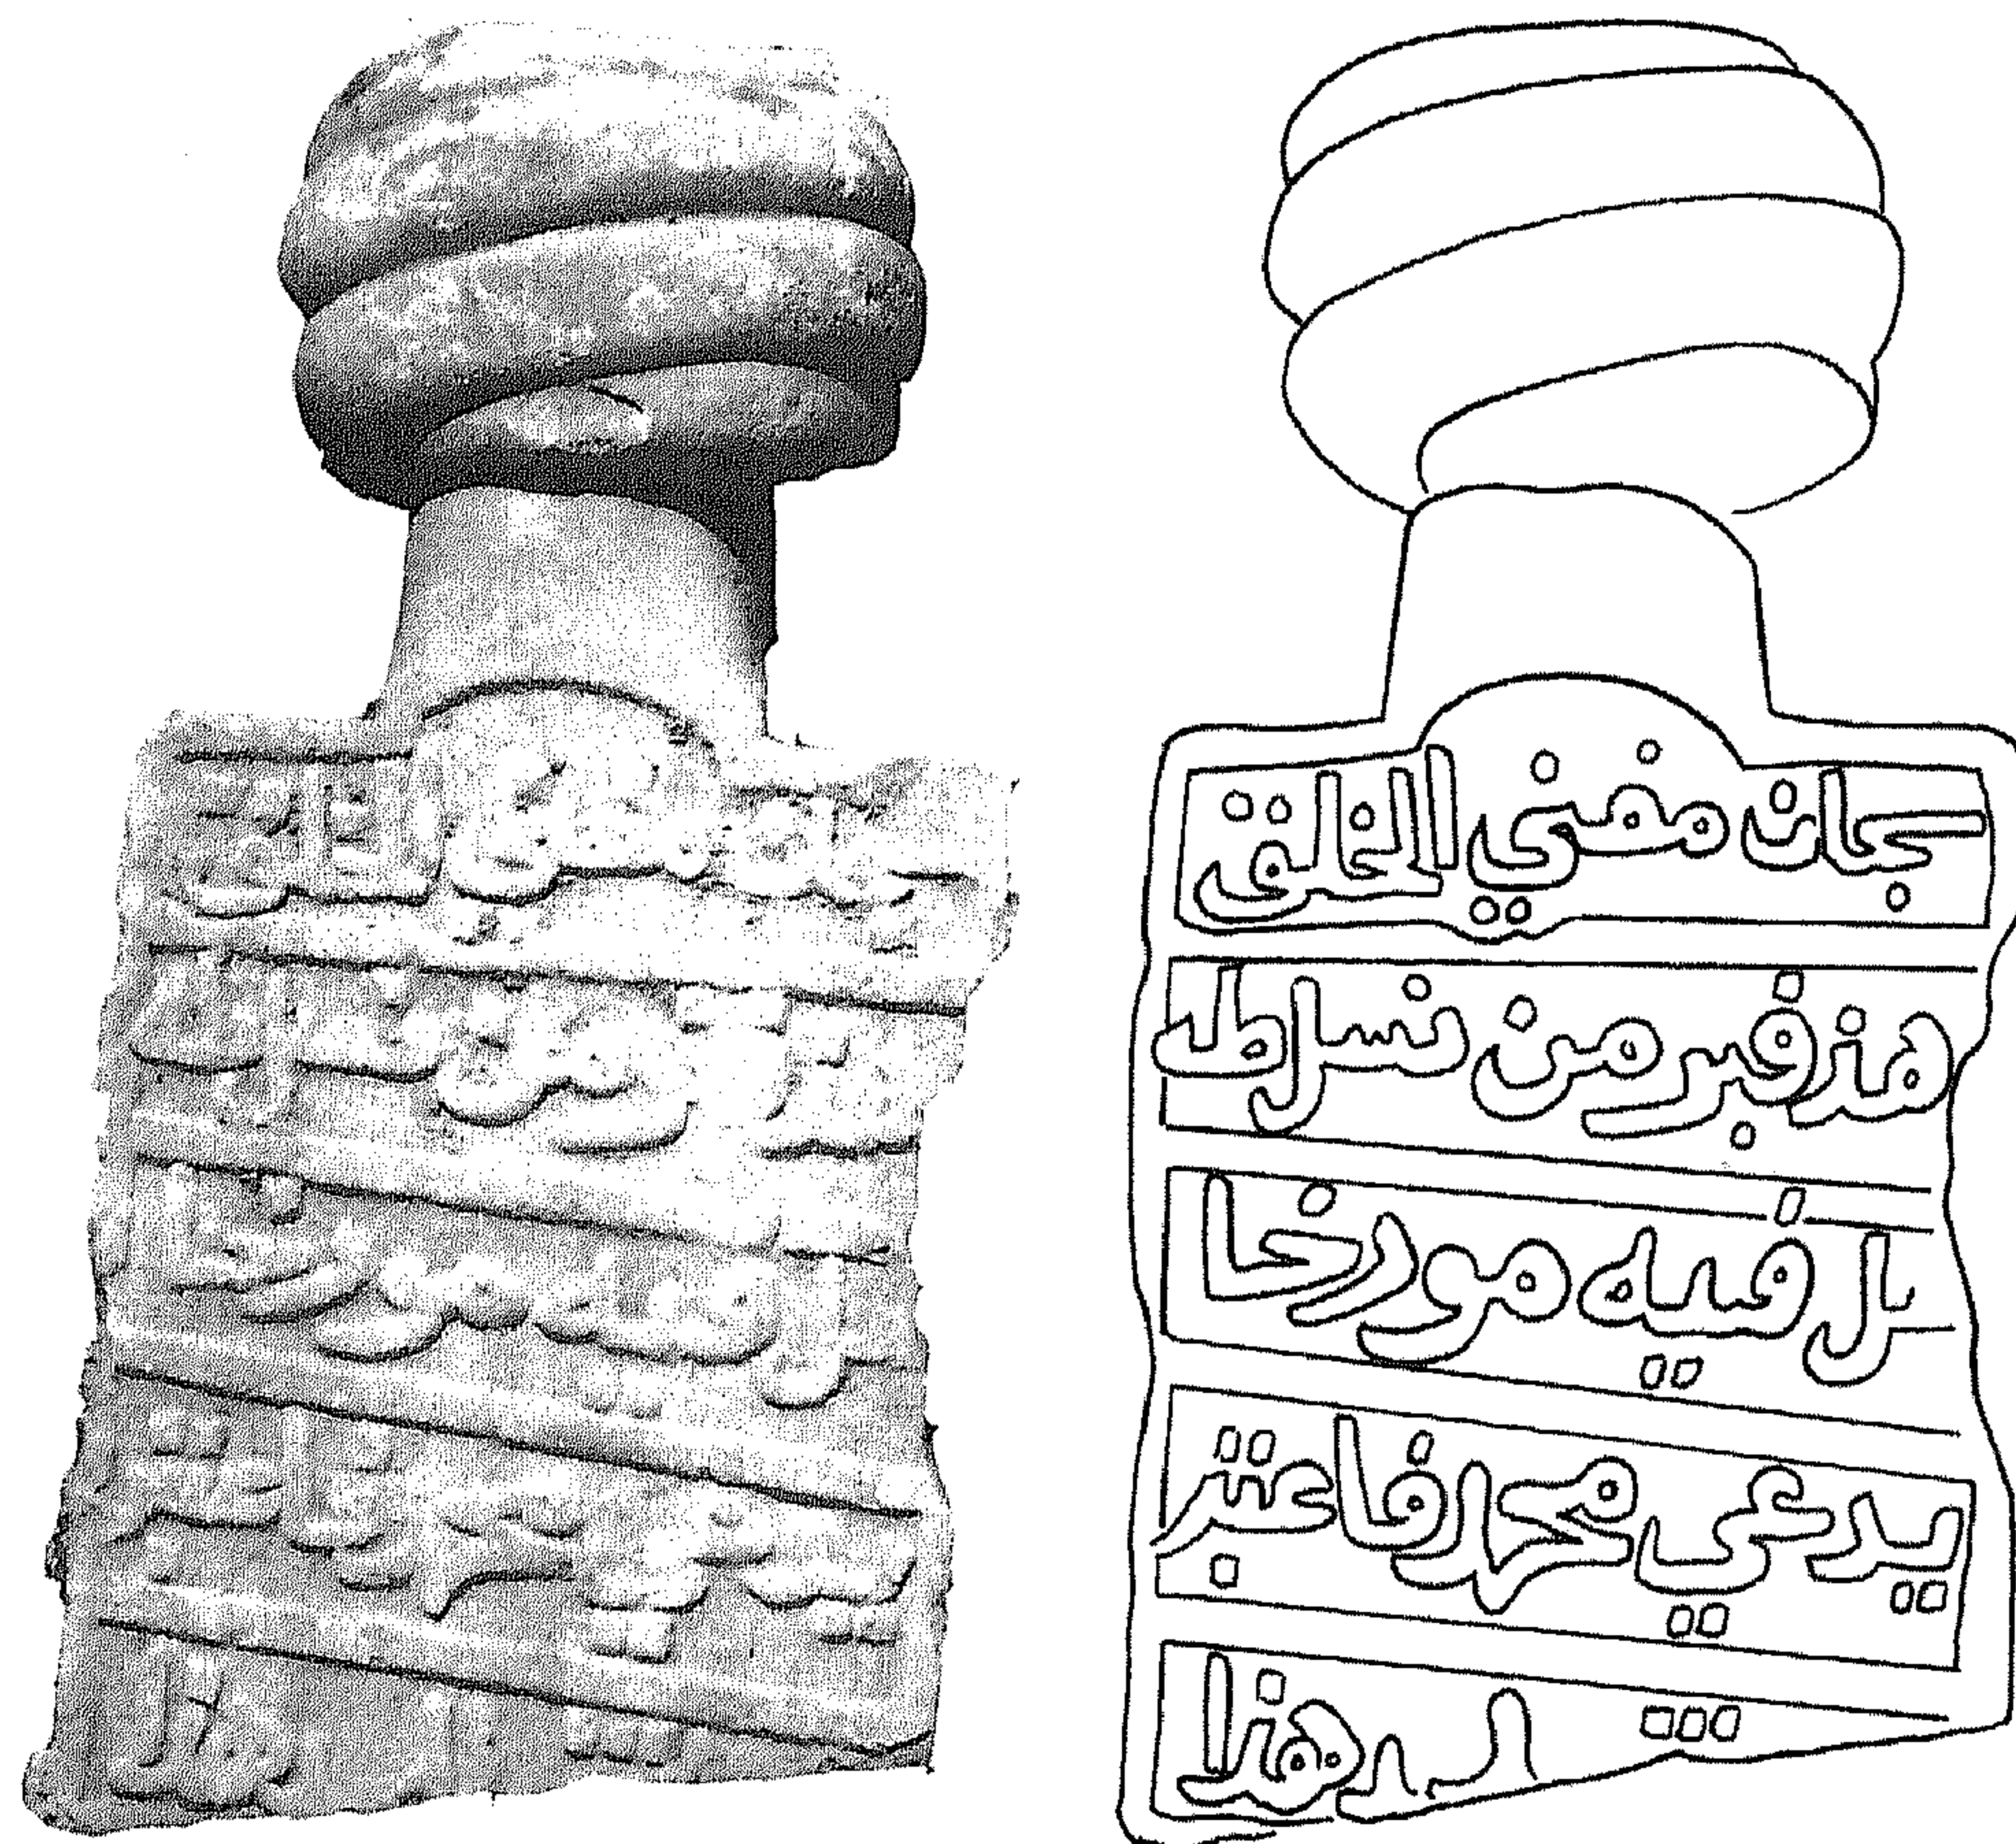 سبحان مفني الخلق
هذ قبر من نسل طه
فيه مورخا
يدعي محمد فاعتبر
هذا